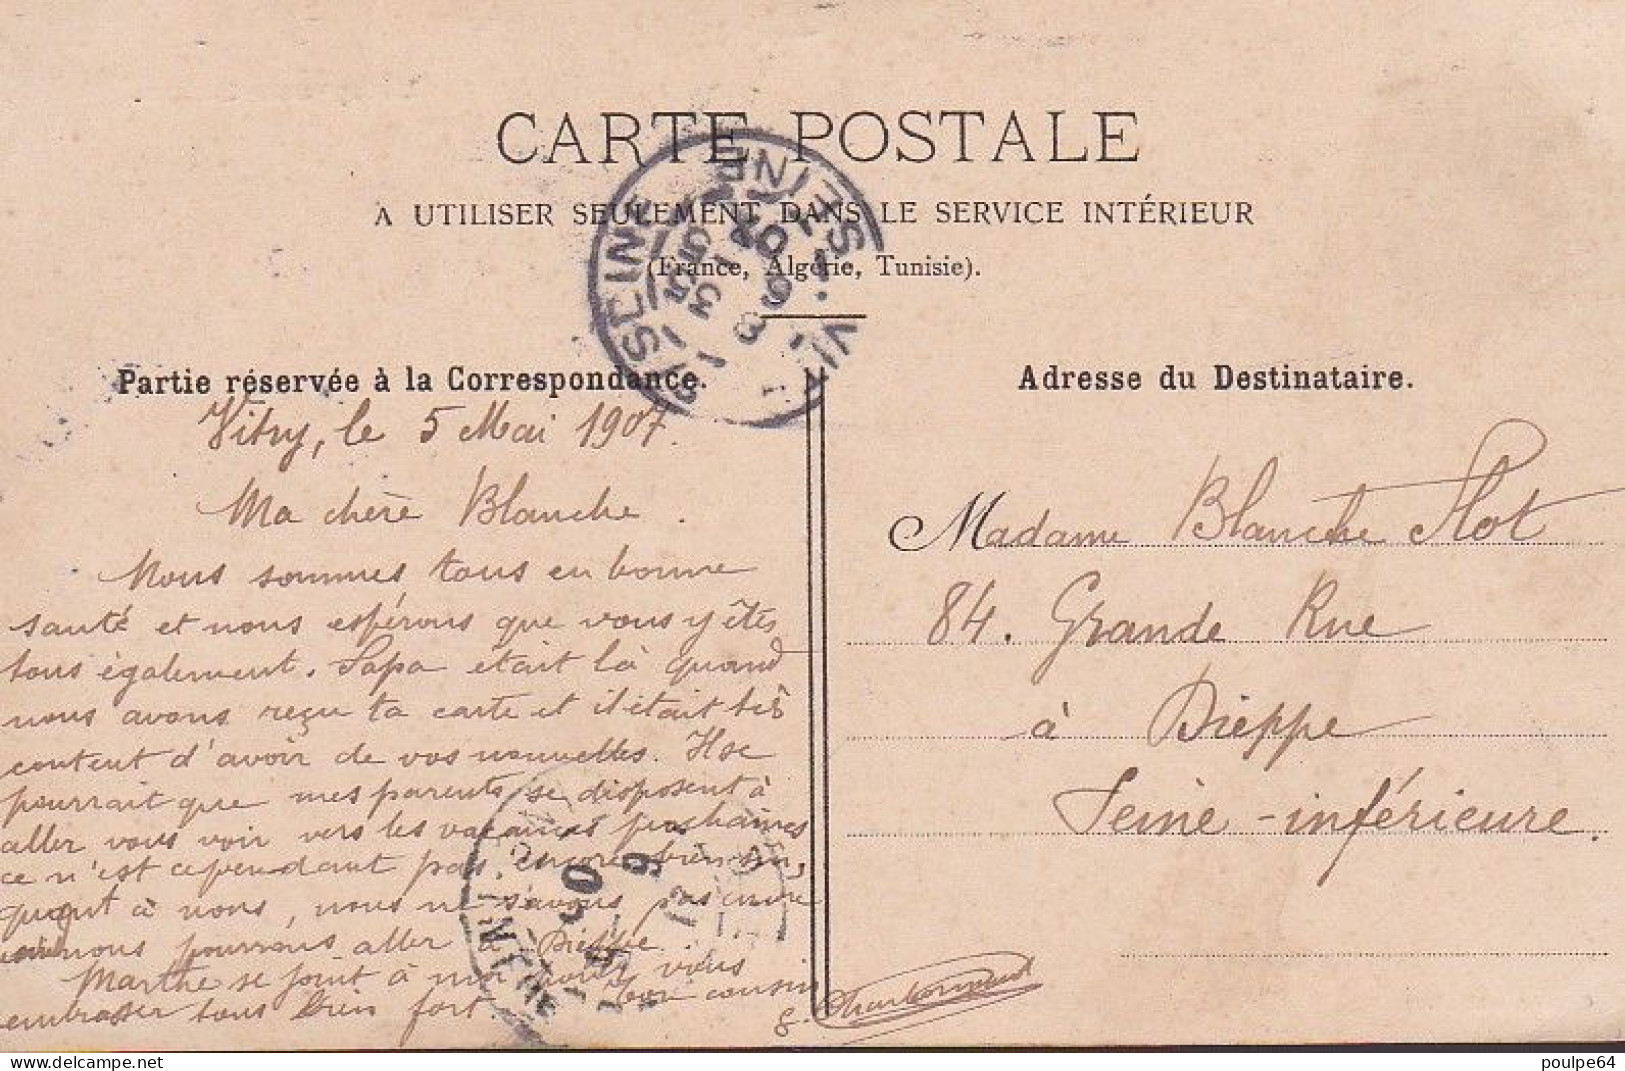 CARTE POSTALE
A UTILISER SEULEMENT DANS LE SERVICE INTÉRIEUR
(France, Algérie, Tunisie).
Partie réservée à la Correspondance.
Vitry, le 5 Mai 1907.
Ma chère Blanche.
Nous sommes tous en bonne
santé et nous espérons que vous y êtes
tous également. Papa était là quand
nous avons reçu ta carte et il était très
content d'avoir de vos nouvelles. Il se
pourrait que mes parents se disposent à
aller vous voir vers les vacances prochaines
ce n'est cependant pas encore bien sûr,
quant à nous, nous ne savons pas encore
si nous pourrons aller à Dieppe.
Marthe se joint à moi pour vous
embrasser tous bien fort.
Ton cousin
Adresse du Destinataire.
Madame Blanche Flot
84. Grande Rue
à Dieppe
Seine-inférieure.
SEINE
poulpe64